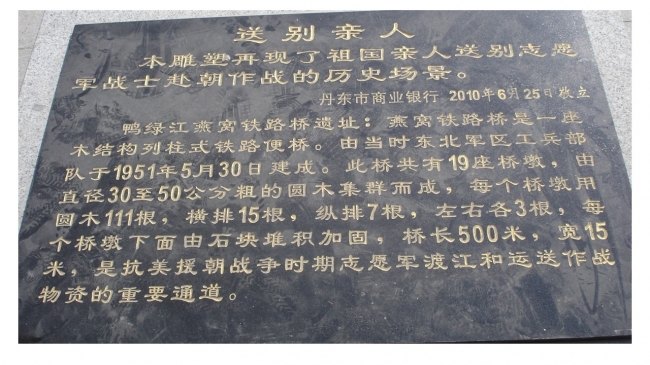 送别亲人
本雕塑再现了祖国亲人送别志愿
军战士赴朝作战的历史场景。
丹东市商业银行 2010年6月25日敬立
鸭绿江燕窝铁路桥遗址：燕窝铁路桥是一座
木结构列柱式铁路便桥。由当时东北军区工兵部
队于1951年5月30日建成。此桥共有19座桥墩，由
直径30至50公分粗的圆木集群而成，每个桥墩用
圆木111根，横排15根，纵排7根，左右各3根，每
个桥墩下面由石块堆积加固，桥长500米，宽15
米，是抗美援朝战争时期志愿军渡江和运送作战
物资的重要通道。